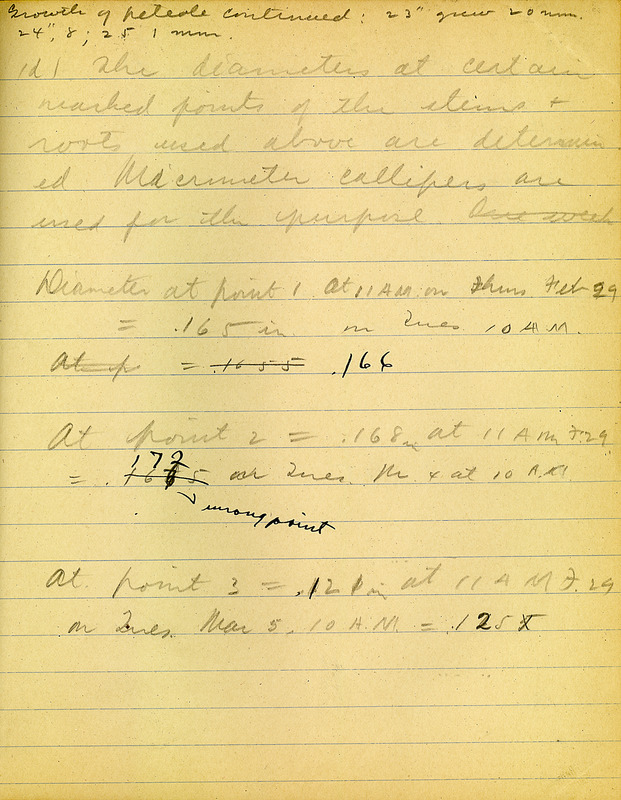 Growth of petiole continued: 23" grew 20 mm.
24", 8; 25 1 mm.
(d) The diameters at certain
marked points of the stems +
roots used above are determin
ed Micrometer callipers are
used for the purpose. One week
Diameter at point 1 at 11 AM on Thurs Feb 29
= .165 in on Tues 10 A.M.
At p = .1655 .166
At point 2 = .168 in at 11 AM F. 29
172
= .1665 on Tues. Mr. 4 at 10 A.M
wrong point
At point 3 = .121 in at 11 A M F. 29
on Tues. Mar 5, 10 A.M. = .125